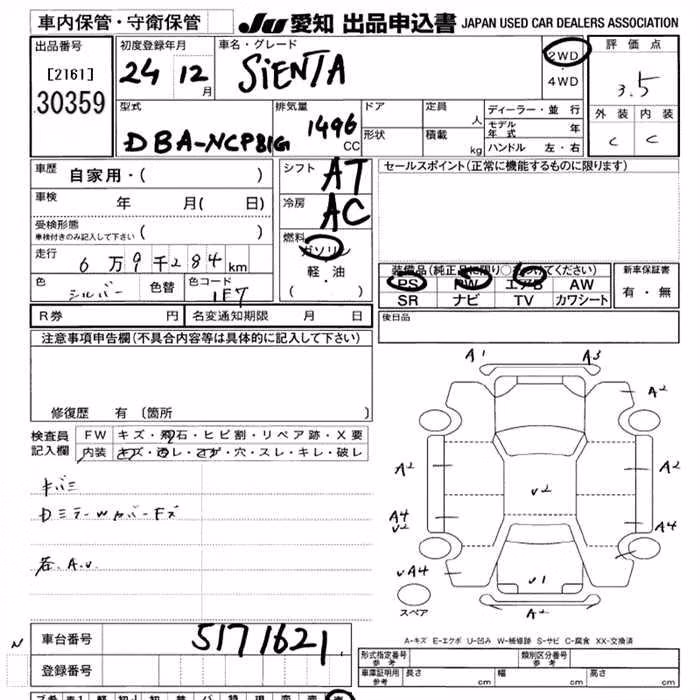 車内保管・守衛保管
Ju 愛知 出品申込書 JAPAN USED CAR DEALERS ASSOCIATION
出品番号
[2161]
30359
初度登録年月
24 12 月
車名・グレード
SiENTA
2WD
・
4WD
評価点
3.5
外装 内装
C C
型式
DBA-NCP81G
排気量
1496 CC
ドア
形状
定員 人
積載 kg
ディーラー・並行
モデル年式 年
ハンドル 左・右
車歴
自家用・( )
車検
年 月( 日)
受検形態
車検付きのみ記入して下さい ( )
走行
6万9千284km
色
シルバー
色替
色コード
1F7
シフト
AT
冷房
AC
燃料
ガソリン
軽・油
( )
セールスポイント(正常に機能するものに限ります)
装備品(純正品に限り○をつけてください)
PS PW エアB AW
SR ナビ TV カワシート
新車保証書
有・無
R券 円 名変通知期限 月 日
後日品
注意事項申告欄(不具合内容等は具体的に記入して下さい)
修復歴 有 〔箇所 〕
検査員
記入欄
FW キズ・飛石・ヒビ割・リペア跡・X要
内装 キズ・汚レ・コゲ・穴・スレ・キレ・破レ
キバミ
DミラーWカバーキズ
各、A.U
A1 A3
A2
A2 A2
U2
A4
U
A4
UA4
U1
A2
スペア
A-キズ E-エクボ U-凹み W-補修跡 S-サビ C-腐食 XX-交換済
N
車台番号 5171621
登録番号
形式指定番号
参考
類別区分番号
参考
車庫証明用
参考
長さ cm 幅 cm 高さ cm